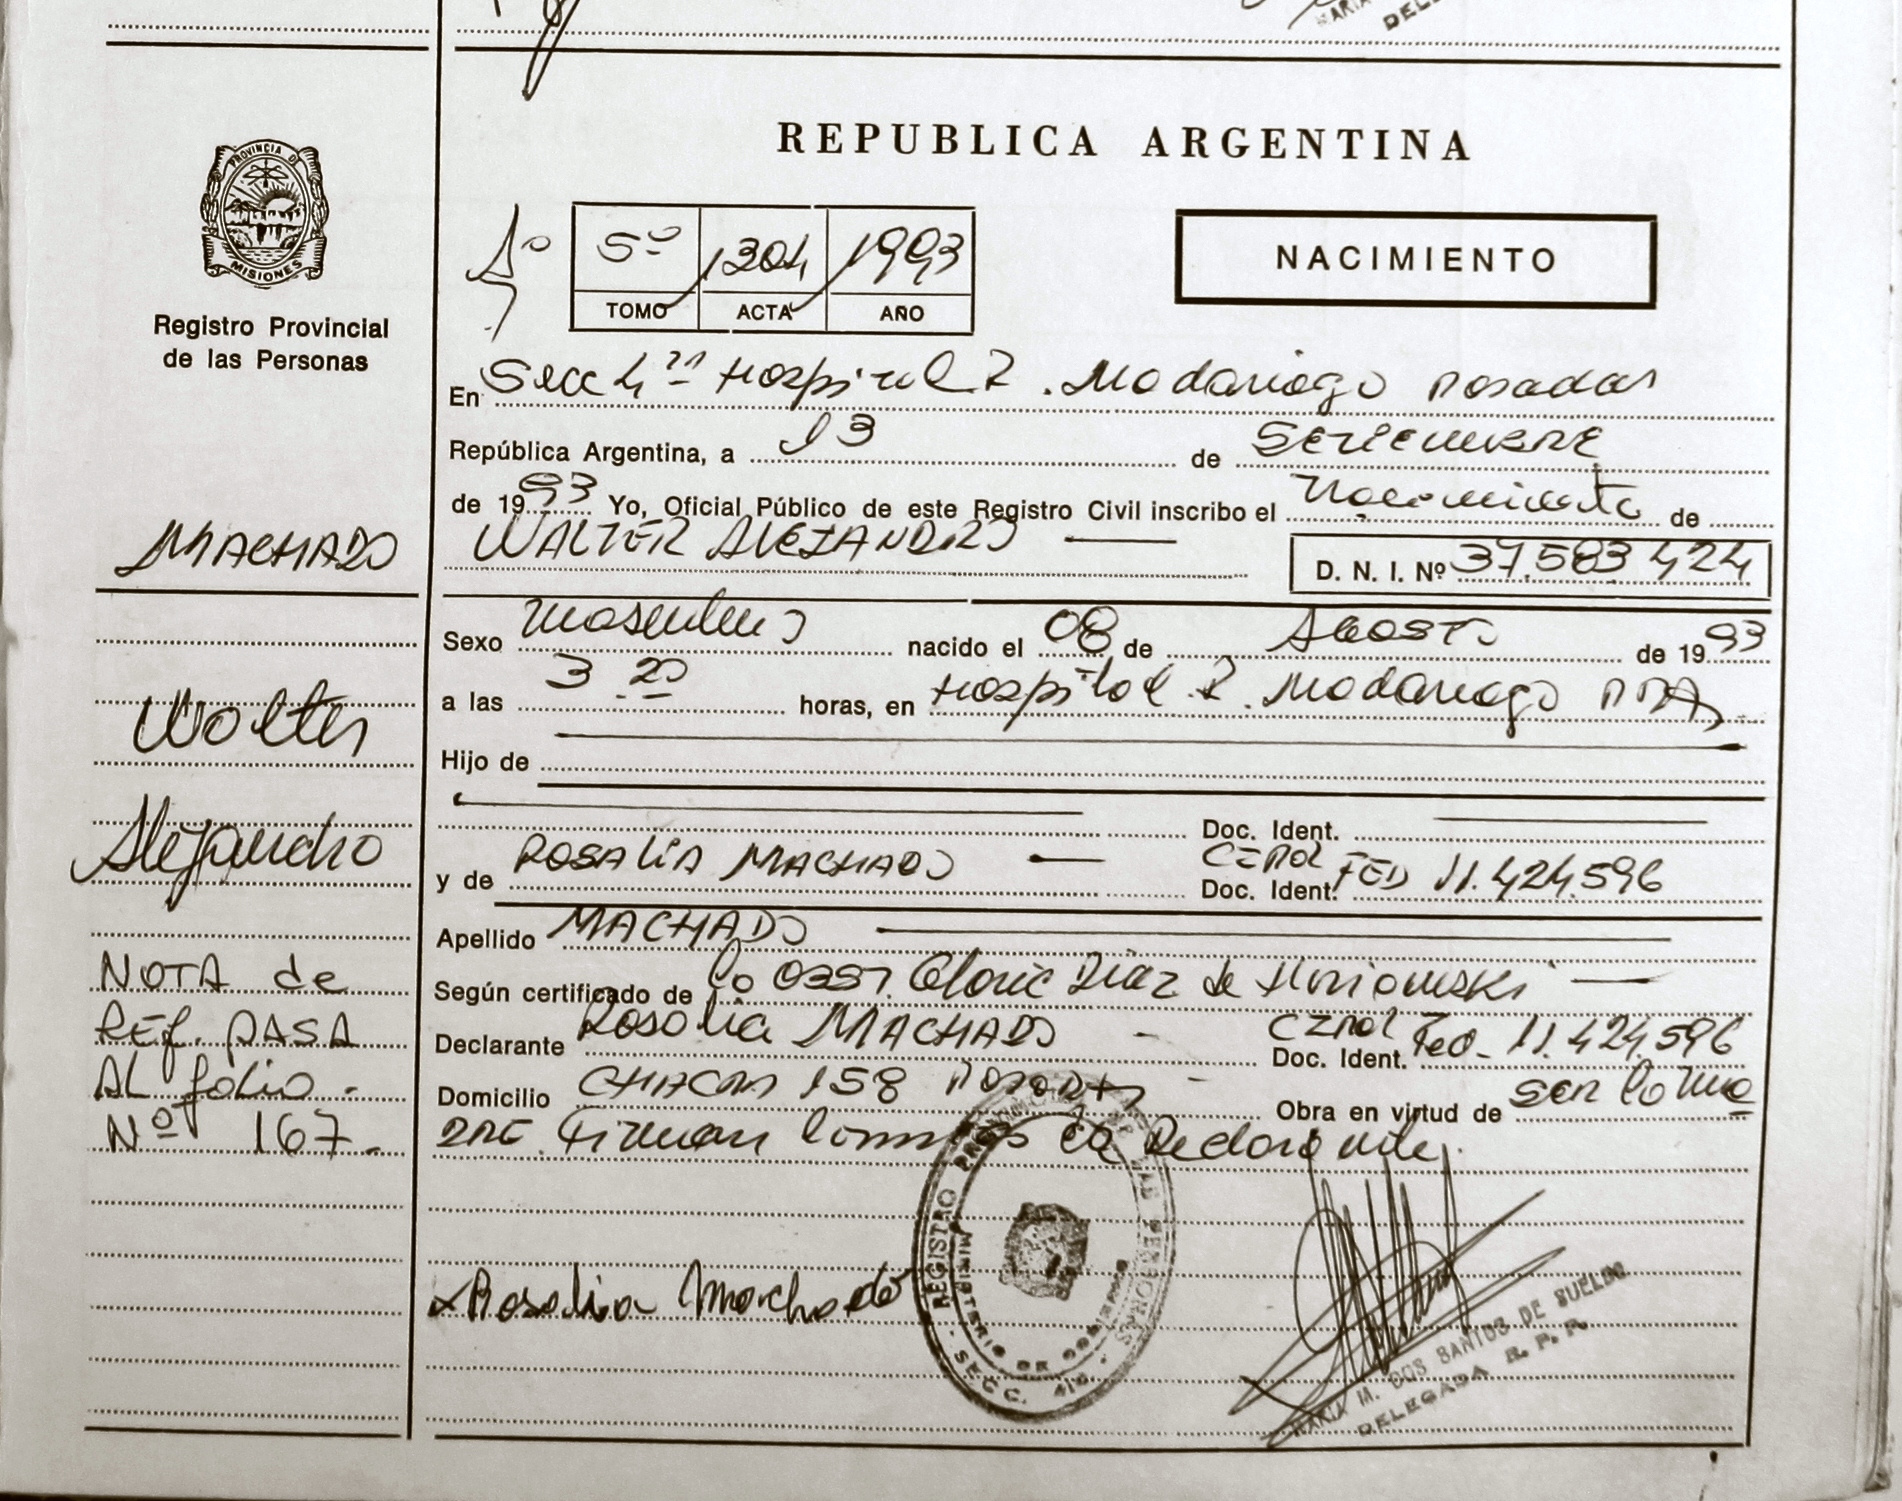 REPUBLICA ARGENTINA
PROVINCIA DE
MISIONES
Registro Provincial
de las Personas
5º 1304 1993
TOMO ACTA AÑO
NACIMIENTO
En Secc 4ta Hospital R. Madariaga Posadas
República Argentina, a 13 de SETIEMBRE
de 1993 Yo, Oficial Público de este Registro Civil inscribo el Nacimiento de
MACHADO
WALTER ALEJANDRO
D. N. I. Nº 37.583 424
Sexo masculino nacido el 08 de AGOSTO de 1993
a las 3 20 horas, en Hospital R. Madariaga PDAS
Walter
Hijo de
Alejandro
Doc. Ident.
y de ROSALIA MACHADO Doc. Ident. CZPOL FED 11.424.596
Apellido MACHADO
NOTA de
Ref. PASA
AL folio -
Nº 167-
Según certificado de la OBST. Gloria Diaz de
Declarante Rosalia MACHADO - Doc. Ident. CZPOL Fed- 11.424.596
Domicilio CHACRA 158 - Obra en virtud de ser la ma
DRE Firman la Declarante.
Rosalia Machado
REGISTRO PROVINCIAL DE LAS PERSONAS
MINISTERIO DE GOBIERNO
SECC. 4ta
MARIA M. DOS SANTOS DE SUELDO
DELEGADA R. P. P.